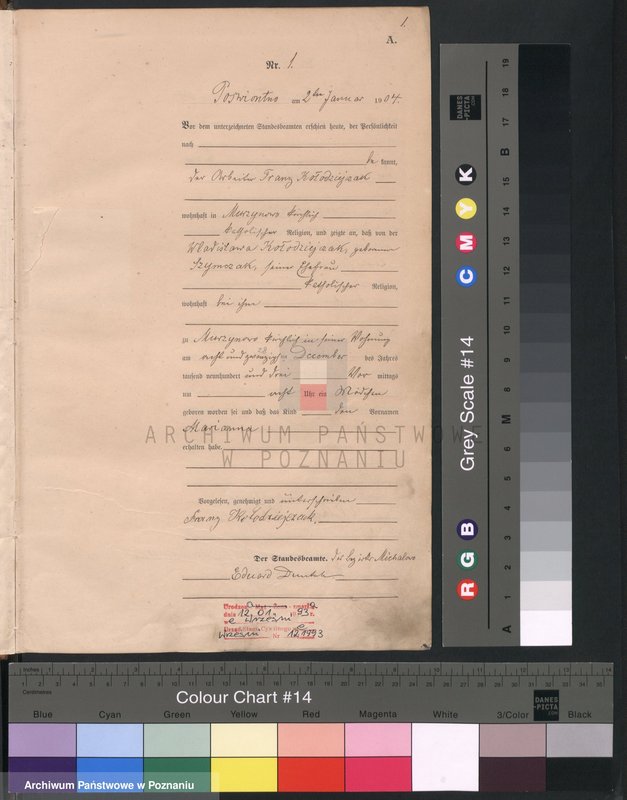 1.
A.
Nr. 1.
am 2ten Januar 1904.
Vor dem unterzeichneten Standesbeamten erschien heute, der Persönlichkeit
nach
be kannt,
der Arbeiter Franz Kołodziejczak
wohnhaft in Murzynowo kirchlich
katholischer Religion, und zeigte an, daß von der
Wladisława Kołodziejczak, geborenen
Szymczak, seiner Ehefrau
katholischer Religion,
wohnhaft bei ihm
zu Murzynowo kirchlich in seiner Wohnung
am acht und zwanzigsten December des Jahres
tausend neunhundert und drei Vor mittags
um acht Uhr ein Mädchen
geboren worden sei und daß das Kind den Vornamen
Marianna
erhalten habe.
Vorgelesen, genehmigt und unterschrieben
Franz Kołodziejczak.
Der Standesbeamte.
Eduard
dnia 12.01.
Wrześni Nr 12/1993
ARCHIWUM PAŃSTWOWE
W POZNANIU
DANES
-PICTA
.COM
Grey Scale #14
R G B C M Y K
A 1 2 3 4 5 6 M 8 9 10 11 12 13 14 15 B 17 18 19
Inches
Centimetres
Colour Chart #14
DANES
-PICTA
.COM
Blue Cyan Green Yellow Red Magenta White 3/Color Black
Archiwum Państwowe w Poznaniu